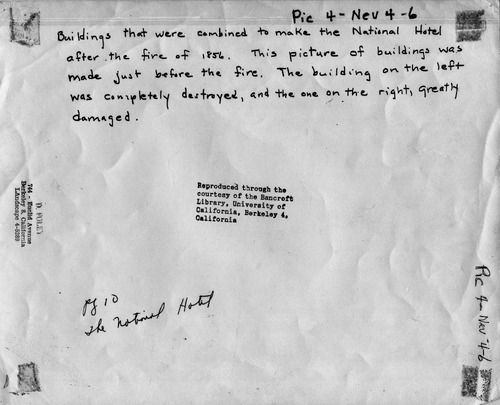 Pic 4-Nev 4-6
Buildings that were combined to make the National Hotel
after the fire of 1856. This picture of buildings was
made just before the fire. The building on the left
was completely destroyed, and the one on the right, greatly
damaged.
Reproduced through the
courtesy of the Bancroft
Library, University of
California, Berkeley 4,
California
D. FOLEY
Euclid Avenue
Berkeley 8, California
LAndscape
pg 10
The National Hotel
Pic 4-Nev 4-6